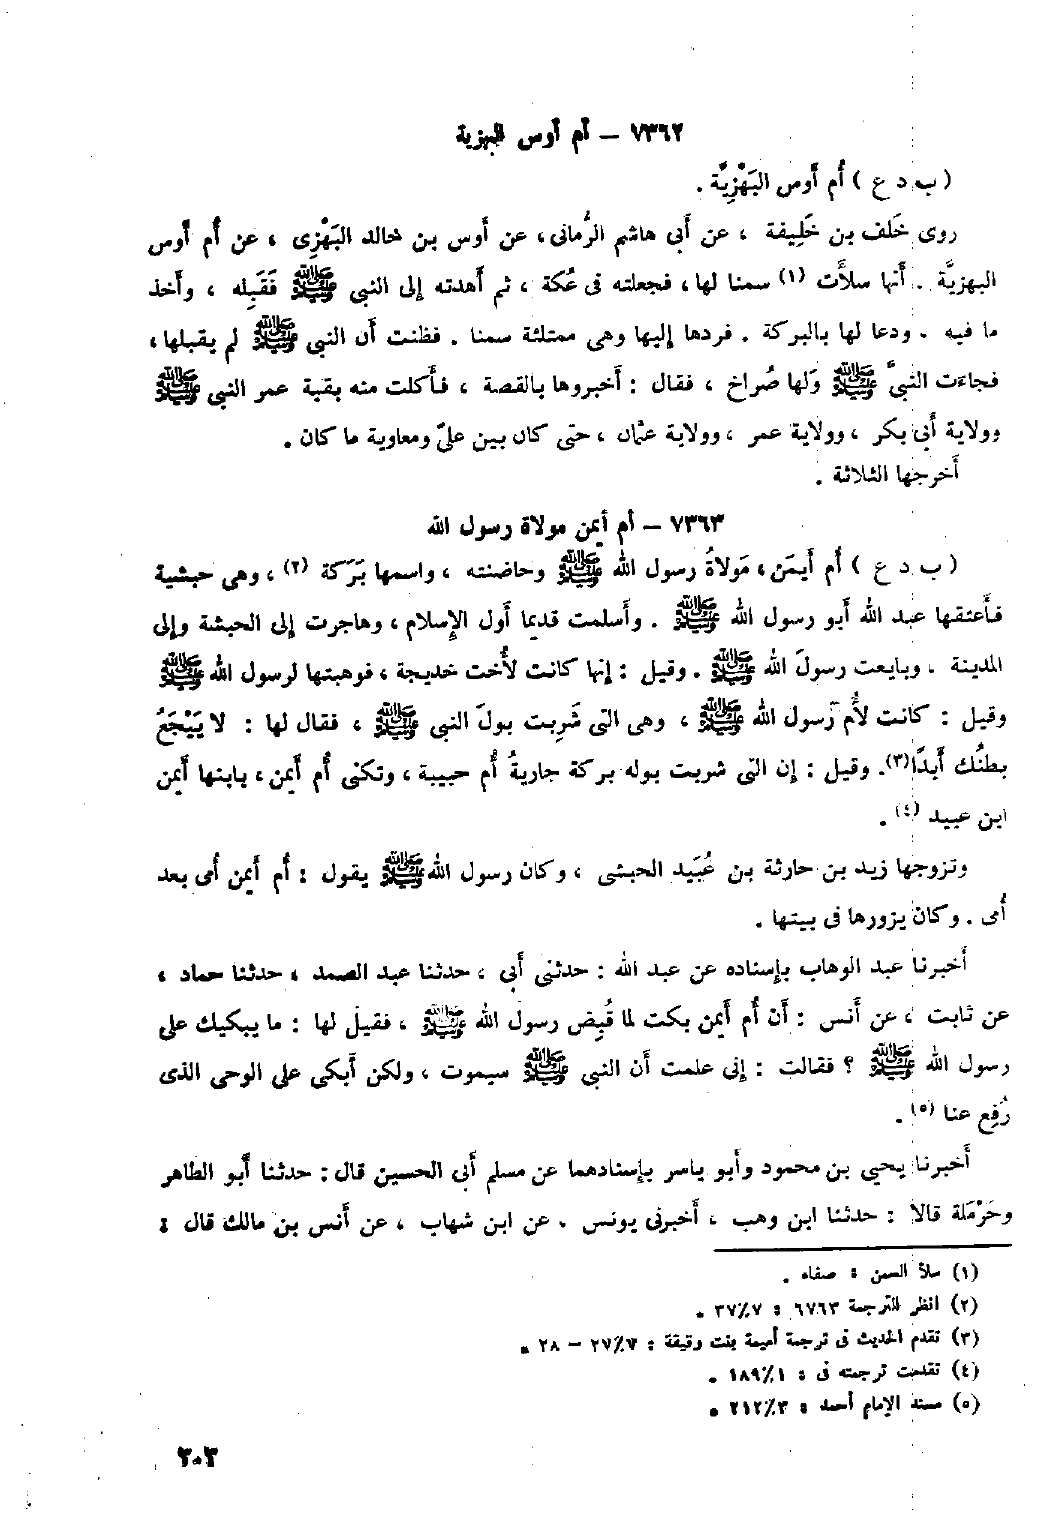 ٧٣٦٢ – أم أوس البهزية
( ب د ع ) أُم أَوس البَهْزِيَّة .
روى خَلَف بن خَلِيفة ، عن أَبى هاشم الرُّمانى ، عن أَوس بن خالد البَهْزِى ، عن أُم أَوس
البهزيَّة . أَنها سلأَت (١) سمنا لها ، فجعلته فى عُكة ، ثم أَهدته إلى النبى ﷺ فَقَبِله ، وأَخذ
ما فيه . ودعا لها بالبركة . فردها إليها وهى ممتلئة سمنا . فظنت أَن النبى ﷺ لم يقبلها ،
فجاءَت النبىَّ ﷺ ولها صُراخ ، فقال : أَخبروها بالقصة ، فأَكلت منه بقية عمر النبى ﷺ
وولاية أَبى بكر ، وولاية عمر ، وولاية عثمان ، حتى كان بين علىّ ومعاوية ما كان .
أَخرجها الثلاثة .
٧٣٦٣ – أم أيمن مولاة رسول الله
( ب د ع ) أُم أَيمَن ، مَولاةُ رسول الله ﷺ وحاضنته ، واسمها بَرَكة (٢) ، وهى حبشية
فأَعتقها عبد الله أَبو رسول الله ﷺ . وأَسلمت قديما أَول الإِسلام ، وهاجرت إلى الحبشة وإلى
المدينة . وبايعت رسولَ الله ﷺ . وقيل : إنها كانت لأُخت خديجة ، فوهبتها لرسول الله ﷺ
وقيل : كانت لأُم رسول الله ﷺ ، وهى التى شَرِبت بولَ النبى ﷺ ، فقال لها : لا يَيْجَعُ
بطنُك أَبدًا(٣). وقيل : إن التى شربت بوله بركة جاريةُ أُم حبيبة ، وتكنى أُم أَيمن ، بابنها أَيمن
ابن عبيد (٤) .
وتزوجها زيد بن حارثة بن عُبَيد الحبشى ، وكان رسول الله ﷺ يقول : أُم أَيمن أُمى بعد
أُمى . وكان يزورها فى بيتها .
أَخبرنا عبد الوهاب بإِسناده عن عبد الله : حدثنى أَبى ، حدثنا عبد الصمد ، حدثنا حماد ،
عن ثابت ، عن أَنس : أَن أُم أَيمن بكت لما قُبِض رسول الله ﷺ ، فقيل لها : ما يبكيك على
رسول الله ﷺ ؟ فقالت : إنى علمت أَن النبى ﷺ سيموت ، ولكن أَبكى على الوحى الذى
رُفِع عنا (٥) .
أَخبرنا يحيى بن محمود وأَبو ياسر بإِسنادهما عن مسلم أَبى الحسين قال : حدثنا أَبو الطاهر
وحَرْمَلة قالا : حدثنا ابن وهب ، أَخبرنى يونس . عن ابن شهاب ، عن أَنس بن مالك قال :
(١) سلأ السمن : صفاه .
(٢) انظر الترجمة ٦٧٦٣ : ٣٧/٧ .
(٣) تقدم الحديث فى ترجمة أميمة بنت رقيقة : ٢٧/٧ – ٢٨ .
(٤) تقدمت ترجمته فى : ١٨٩/١ .
(٥) مسند الإمام أحمد : ٢١٢/٣ .
٣٠٣